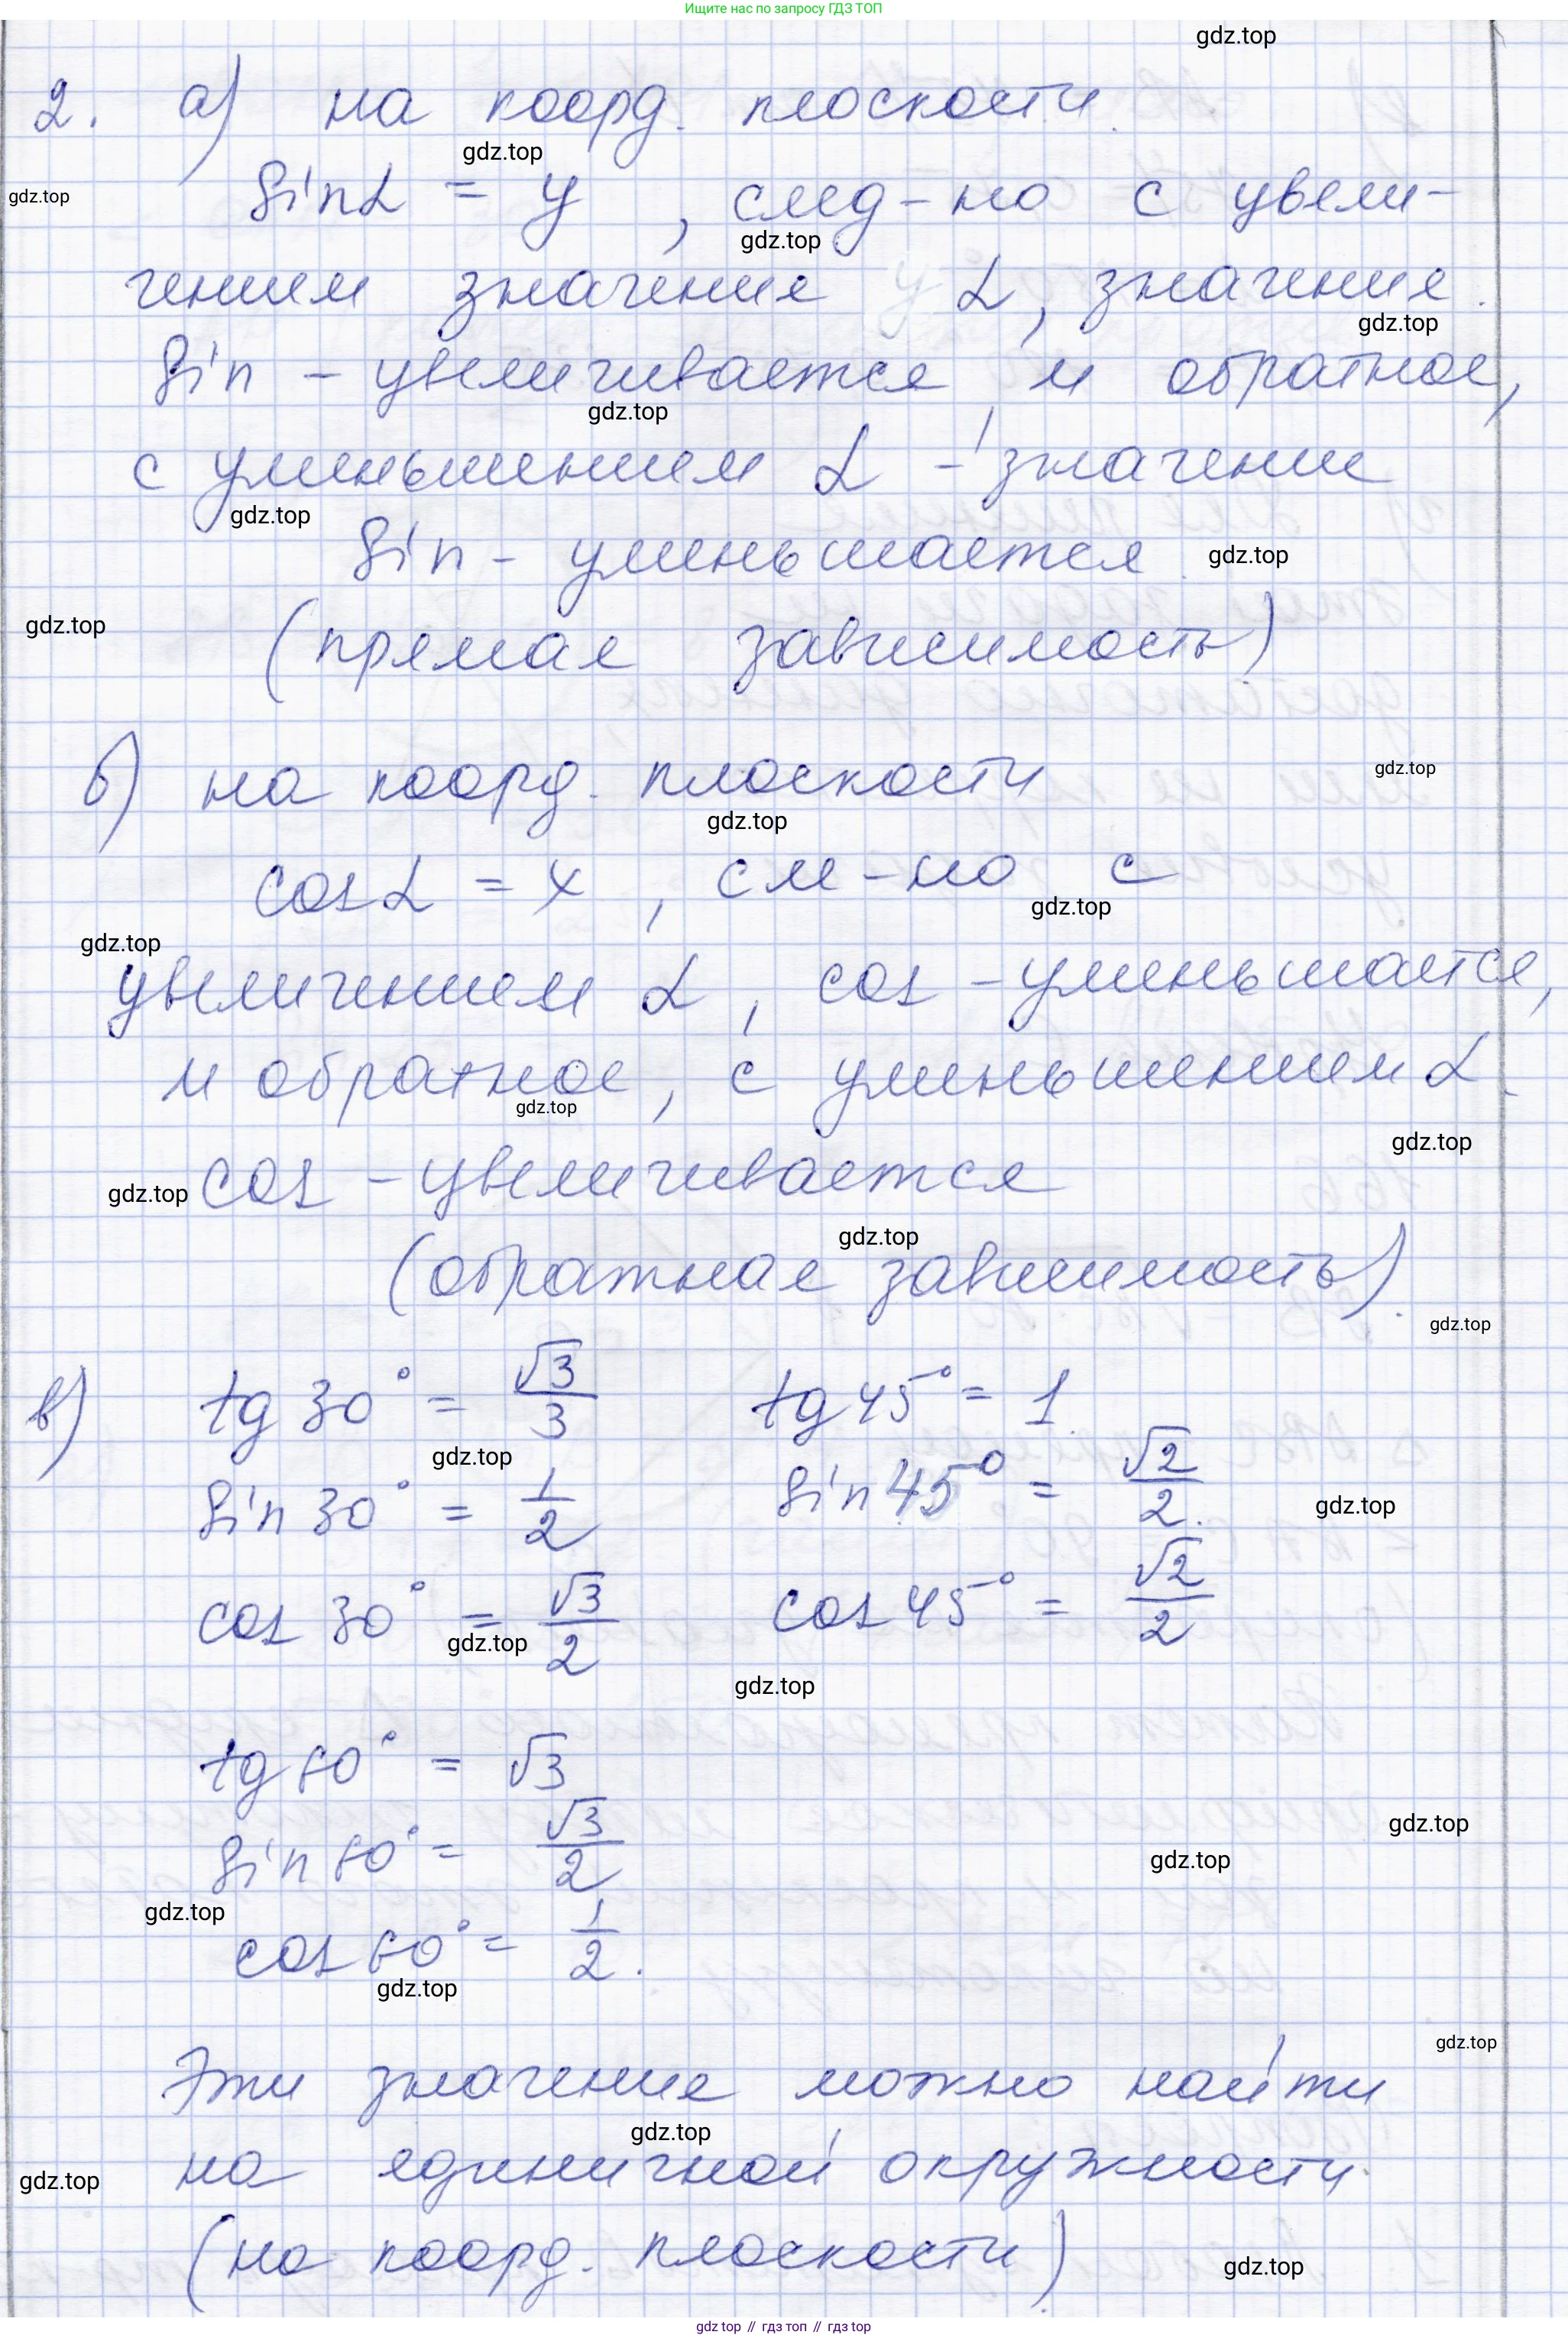 Ищите нас по запросу ГДЗ ТОП
gdz.top
2. а) на коорд. плоскости.
gdz.top
gdz.top
sinα = y, след-но с увели-
gdz.top
чением значение α, значение
gdz.top
sin - увеличивается и обратное,
gdz.top
с уменьшением α - значение
gdz.top
sin - уменьшается
gdz.top
gdz.top
(прямая зависимость)
б) на коорд. плоскости
gdz.top
gdz.top
cosα = x, сл-но с
gdz.top
gdz.top
увеличением α, cos - уменьшается,
и обратное, с уменьшением α
gdz.top
gdz.top
gdz.top
cos - увеличивается
gdz.top
(обратная зависимость).
gdz.top
в) tg 30° = √3/3 tg 45° = 1
gdz.top
sin 30° = 1/2 sin 45° = √2/2.
gdz.top
cos 30° = √3/2 cos 45° = √2/2
gdz.top
gdz.top
tg 60° = √3
gdz.top
sin 60° = √3/2
gdz.top
gdz.top
cos 60° = 1/2.
gdz.top
gdz.top
Эти значение можно найти
gdz.top
на единичной окружности.
gdz.top
(на коорд. плоскости)
gdz.top
gdz top // гдз топ // гдз top